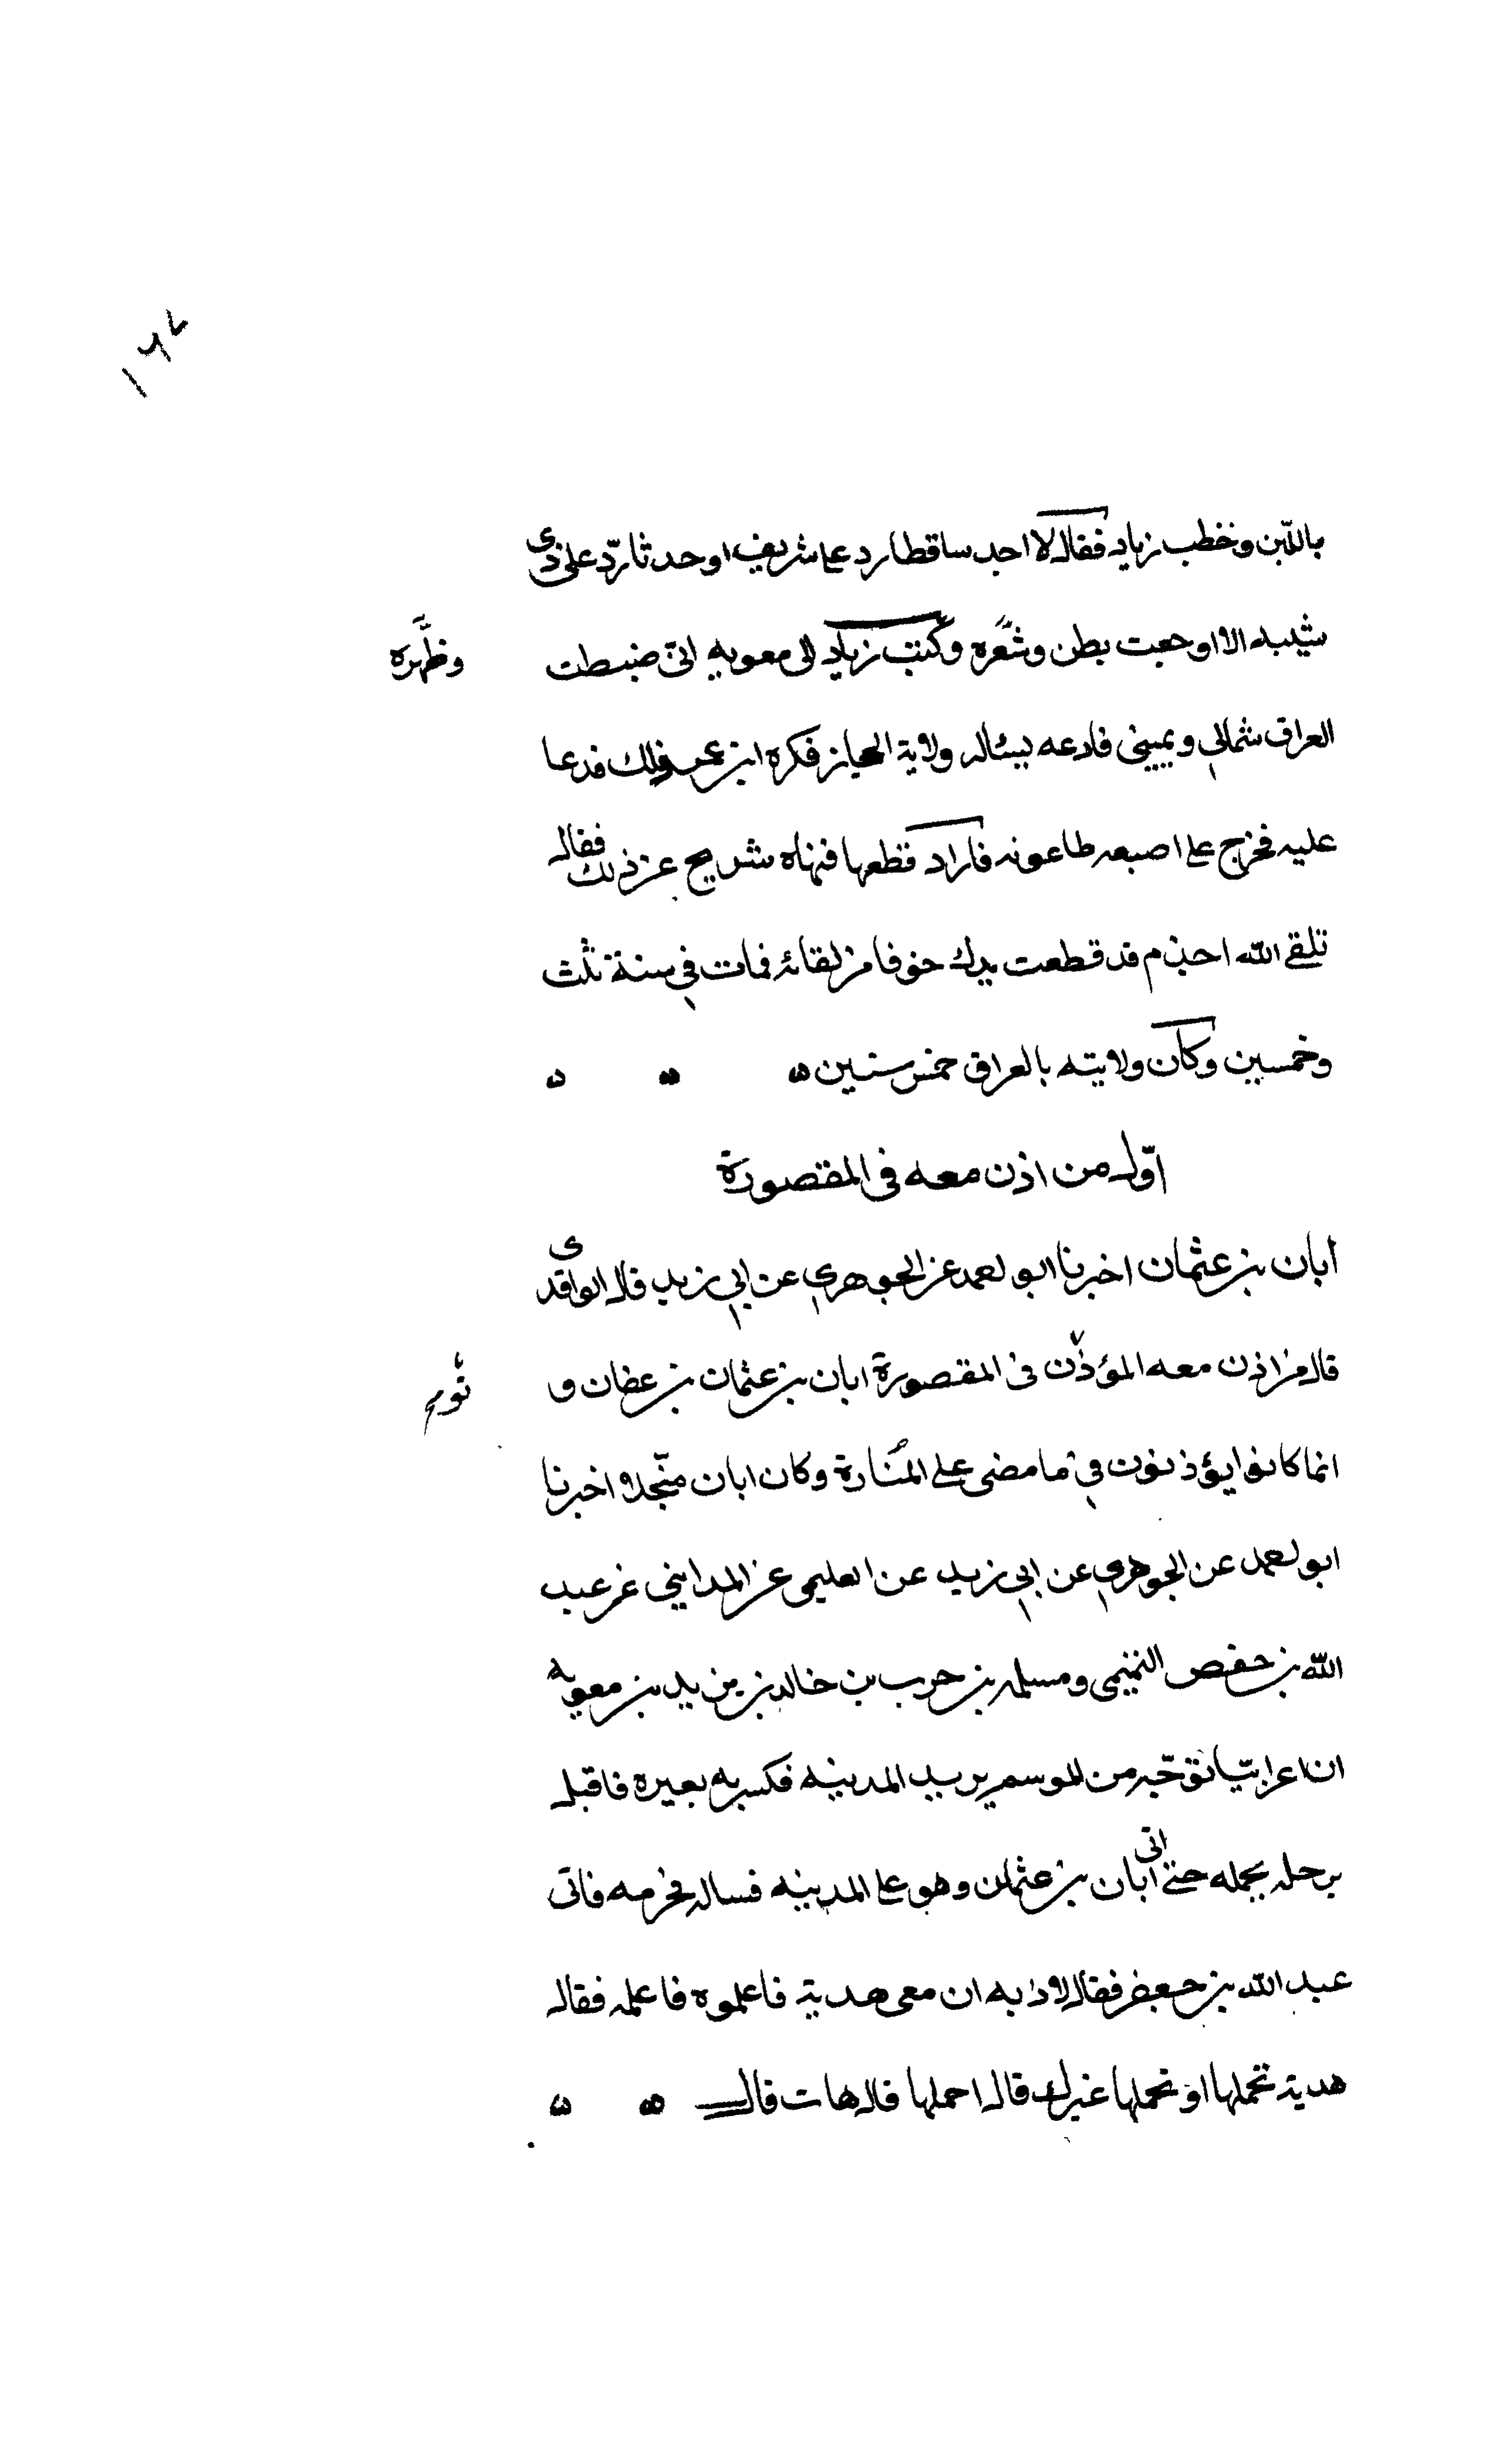 ١٦٧
باللين وخطب زياد فقال لا اجد ساقطا رد على شريف او حدثا ردّ على ذى
شيبه الا اوجعت بطنه وشعره وكتب زياد الى معويه انى ضبطت
وظهره
العراق بشمالي ويميني فارعه يسئاله ولاية الحجاز فكره ابن عمر ذلك فدعا
عليه فخرج على اصبعه طاعونه فاراد قطعها فنهاه شريح عن ذلك فقال
تلقى الله اجذم قد قطعت يدك خوفا من لقائه فمات في سنة ثلث
وخمسين وكان ولايته بالعراق خمس سنين ه ه ه
اوّل من اذن معه فى المقصورة
ابان بن عثمان اخبرنا ابو احمد عن الجوهري عن ابي زيد قال الواقدى
قال من اذن معه المؤذن فى المقصورة ابان بن عثمان بن عفان و
انما كانوا يؤذنون في ما مضى على المنارة وكان ابان اخبرنا
ابو احمد عن الجوهري عن ابي زيد عن العليمى عن المدايني عن عبد
الله بن حفص التميمى ومسلمه بن حرب بن خالد بن يزيد بن معويه
ان اعرابيّا توجّه من الموسم يريد المدينه فكسر به بعيره فاقبل
برحله يحمله حتى اتى ابان بن عثمان وهو على المدينه فساله فحرمه فاتى
عبد الله بن جعفر فقال لاذ به ان معى هدية فاعلموه فاعلمه فقال
هدية تحملها او يحملها غيرك قال احملها قال هات قال ه ه